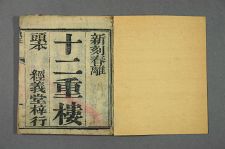 新刻春離
十二重樓
頭本
經義堂梓行